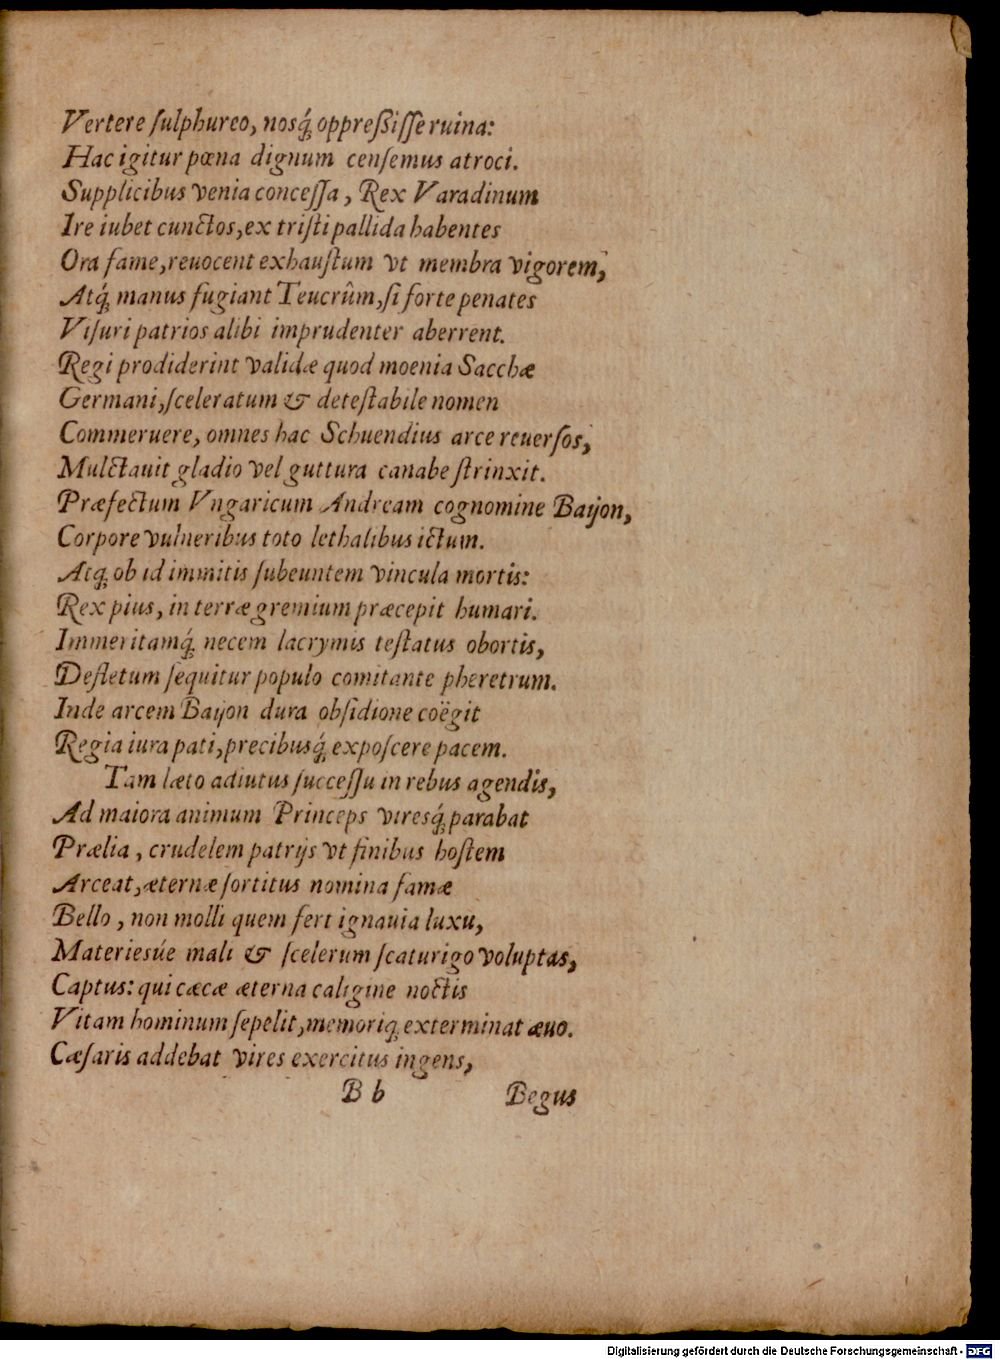 Vertere ſulphureo, nosq́ꝫ oppreſſiſſe ruina:
Hac igitur pœna dignum cenſemus atroci.
Supplicibus venia conceſſa, Rex Varadinum
Ire iubet cunctos, ex triſti pallida habentes
Ora fame, reuocent exhauſtum vt membra vigorem,
Atq́ꝫ manus fugiant Teucrûm, ſi forte penates
Viſuri patrios alibi imprudenter aberrent.
Regi prodiderint validæ quod moenia Sacchæ
Germani, ſceleratum & deteſtabile nomen
Commeruere, omnes hac Schuendius arce reuerſos,
Mulctauit gladio vel guttura canabe ſtrinxit.
Præfectum Vngaricum Andream cognomine Baijon,
Corpore vulneribus toto lethalibus ictum.
Atqꝫ ob id immitis ſubeuntem vincula mortis:
Rex pius, in terræ gremium præcepit humari.
Immeritamq́ꝫ necem lacrymis teſtatus obortis,
Defletum ſequitur populo comitante pheretrum.
Inde arcem Baijon dura obſidione coëgit
Regia iura pati, precibusq́ꝫ expoſcere pacem.
Tam læto adiutus ſucceſſu in rebus agendis,
Ad maiora animum Princeps viresq́ꝫ parabat
Prælia, crudelem patrijs vt finibus hoſtem
Arceat, æternæ ſortitus nomina famæ
Bello, non molli quem fert ignauia luxu,
Materiesúe mali & ſcelerum ſcaturigo voluptas,
Captus: qui cæcæ æterna caligine noctis
Vitam hominum ſepelit, memoriqꝫ exterminat æuo.
Cæſaris addebat vires exercitus ingens,
B b Begus
Digitalisierung gefördert durch die Deutsche Forschungsgemeinschaft - DFG